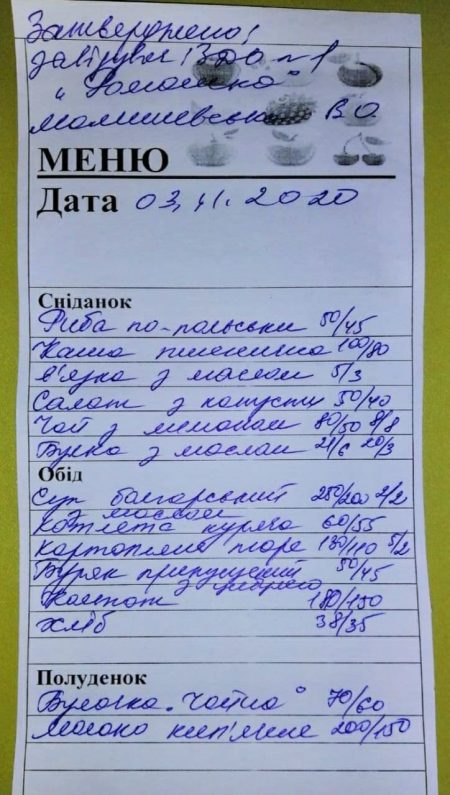 Затверджено:
завідувач ЗДО №1
"Ромашка"
Малишевська В О
МЕНЮ
Дата 03.11.2020
Сніданок
Риба по-польськи 50/45
Каша пшенична 100/80
в'язка з маслом 5/3
Салат з капусти 50/40
Чай з лимоном 80/50 8/8
Булка з маслом 21/6 20/3
Обід
Суп болгарський 250/200 2/2
з маслом
Котлета куряча 60/55
Картопляне пюре 130/110 5/2
Буряк припущений 50/45
з цибулею
Компот 180/150
Хліб 38/35
Полуденок
Булочка "Чайна" 70/60
Молоко кип'ячене 200/150